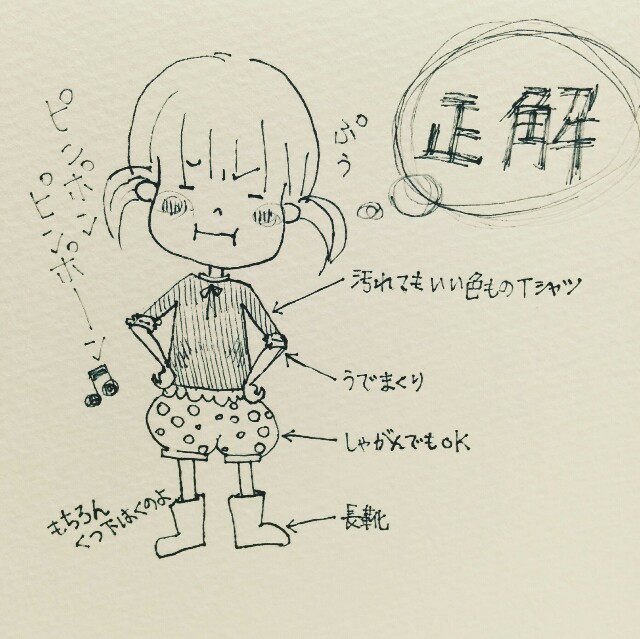 正解
ピンポン
ピンポーン
ぷぅ
汚れてもいい色ものTシャツ
うでまくり
しゃがんでもOK
長靴
もちろん
くつ下はくのよ